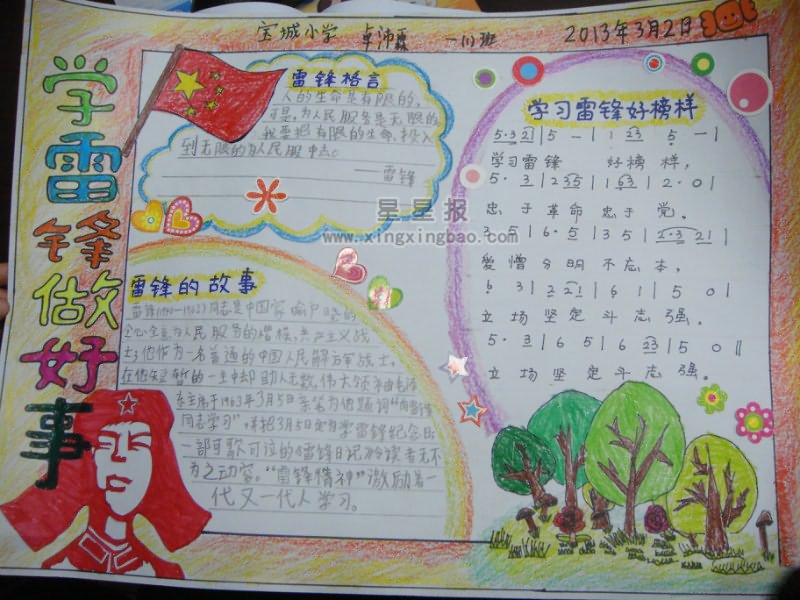 宝城小学 卓沛霖 一(1)班 2013年3月2日
学雷锋做好事
雷锋格言
人的生命是有限的,
可是,为人民服务是无限的
我要把有限的生命,投入
到无限的为人民服中去。
——雷锋
星星报
www.xingxingbao.com
雷锋的故事
同志是中国
全心全意为人民服务的楷模,共产主义战
士;他作为一名普通的中国人民解放军战士,
在他短暂的一生中却助人无数。伟大领
主席于1963年3月5日亲笔为他题词“向雷锋
同志学习”,并把3月5日定为学雷锋纪念日
一部可歌可泣的《雷锋日记》令读者无不
为之动容。“雷锋精神”激励着一
代又一代人学习。
学习雷锋好榜样
5·3 2|5 -|1 23 5 -|
学习雷锋 好榜样,
5· 3|2 35|1 63|2·0|
忠于革命忠于党。
3 5|6·5|3 5|2·3 21|
爱憎分明不忘本,
6 3|2 21|6 1|5 0|
立场坚定斗志强。
5· 3|6 5|6 23|5 0‖
立场坚定斗志强。